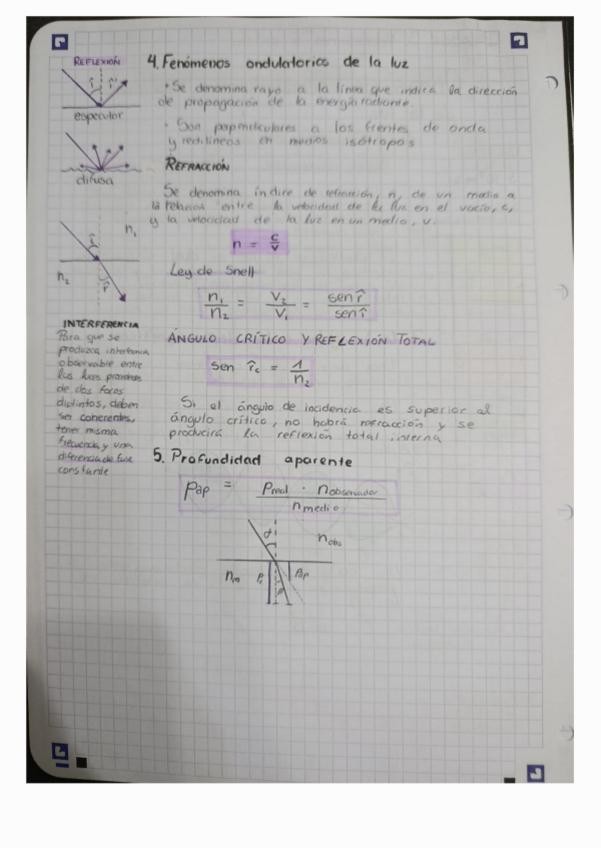 REFLEXIÓN
î r̂'
especular
difusa
î
n₁
n₂
r̂
INTERFERENCIA
Para que se
produzca interferencia
observable entre
las luces procedentes
de dos focos
distintos, deben
ser coherentes,
tener misma
frecuencia y una
diferencia de fase
constante
4. Fenómenos ondulatorios de la luz
• Se denomina rayo a la línea que indica la dirección
de propagación de la energía radiante.
• Son perpendiculares a los frentes de onda
y rectilíneos en medios isótropos
REFRACCIÓN
Se denomina índice de refracción, n, de un medio a
la relación entre la velocidad de la luz en el vacío, c,
y la velocidad de la luz en un medio, v.
n = c/v
Ley de Snell
n₁/n₂ = v₂/v₁ = sen r̂/sen î
ÁNGULO CRÍTICO Y REFLEXIÓN TOTAL
sen îc = 1/n₂
Si el ángulo de incidencia es superior al
ángulo crítico, no habrá refracción y se
producirá la reflexión total interna
5. Profundidad aparente
Pap = Preal · nobservador / nmedio
nobs
nm Pr Pap